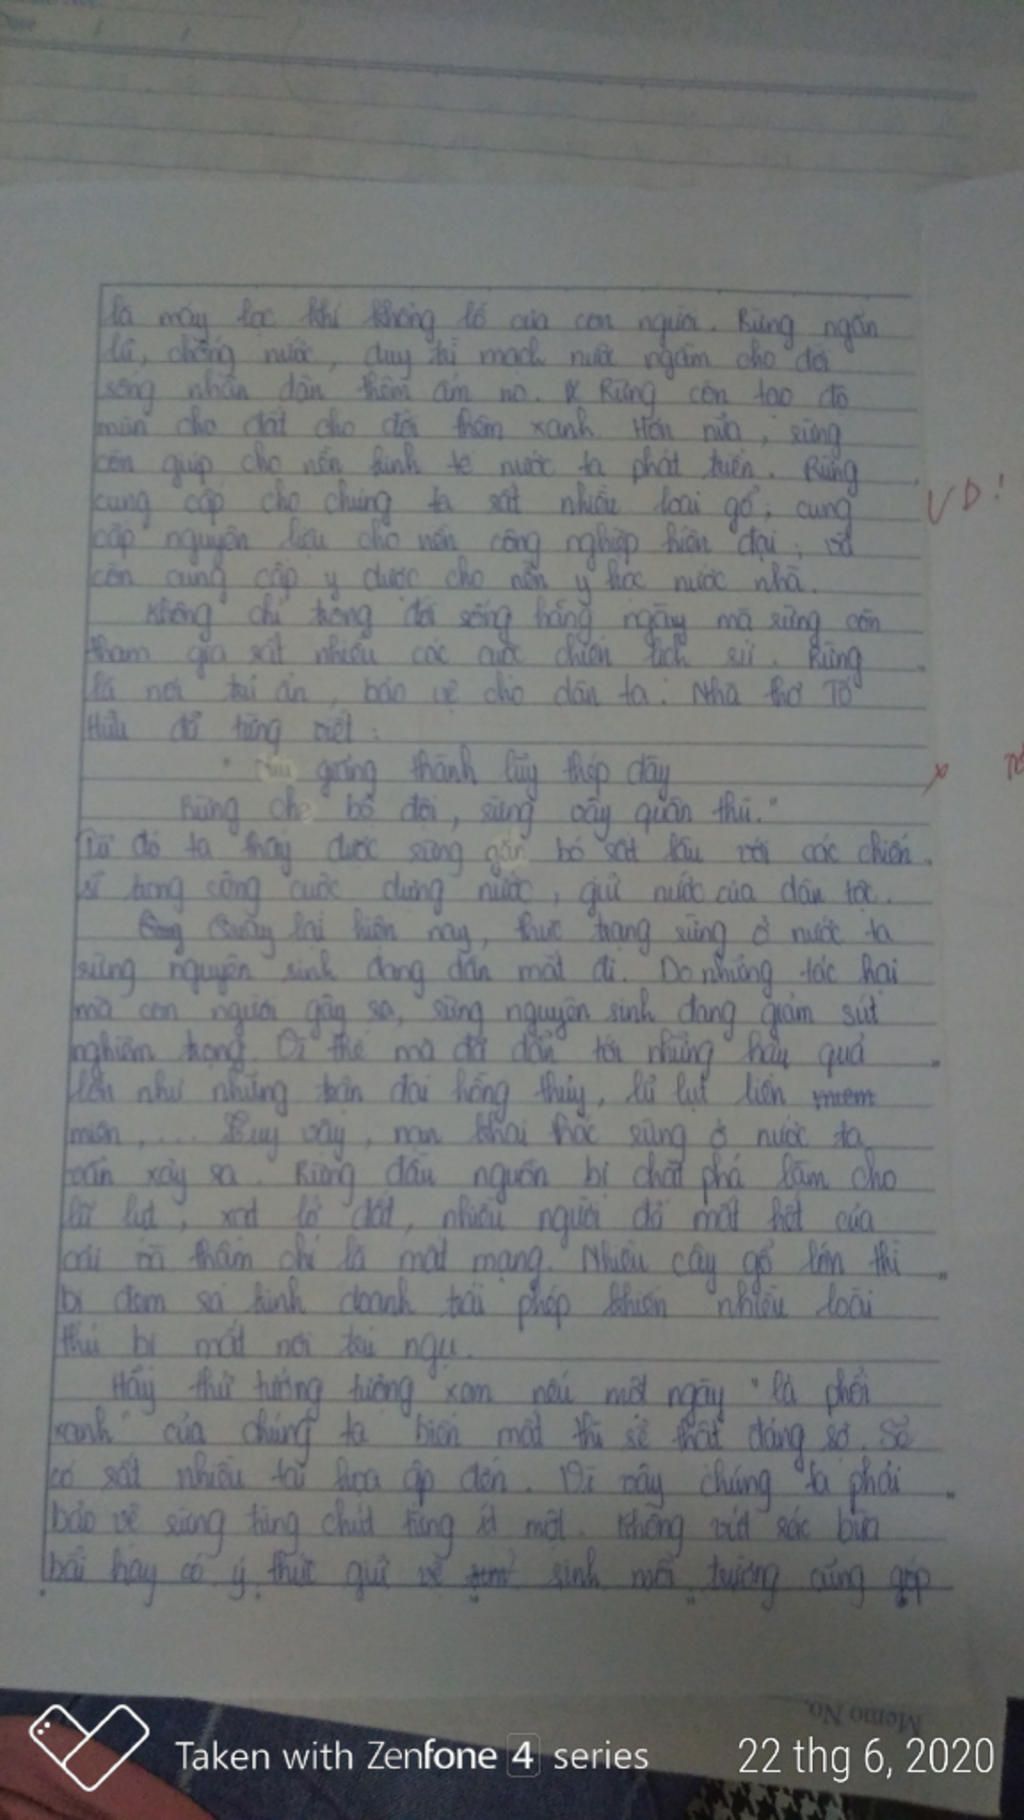 là máy lọc khí khổng lồ của con người. Rừng ngăn
lũ, chống nước, duy trì mạch nước ngầm cho đời
sống nhân dân thêm ấm no. Rừng còn tạo độ
mùn cho đất cho đời thêm xanh. Hơn nữa, rừng
còn giúp cho nền kinh tế nước ta phát triển. Rừng
cung cấp cho chúng ta rất nhiều loại gỗ; cung
VD!
cấp nguyên liệu cho nền công nghiệp hiện đại; và
còn cung cấp y dược cho nền y học nước nhà.
Không chỉ trong đời sống hằng ngày mà rừng còn
tham gia rất nhiều các cuộc chiến lịch sử. Rừng
là nơi trú ẩn, bảo vệ cho dân ta. Nhà thơ Tố
Hữu đã từng viết:
" giăng thành lũy thép dày
Rừng che bộ đội, rừng vây quân thù."
Từ đó ta thấy được rừng gắn bó rất lâu với các chiến
sĩ trong công cuộc dựng nước, giữ nước của dân tộc.
Quay lại hiện nay, thực trạng rừng ở nước ta
rừng nguyên sinh đang dần mất đi. Do những tác hại
mà con người gây ra, rừng nguyên sinh đang giảm sút
nghiêm trọng. Vì thế mà đã dẫn tới những hậu quả
lớn như những trận đại hồng thủy, lũ lụt liên
miên, ... Tuy vậy, nạn khai thác rừng ở nước ta
vẫn xảy ra. Rừng đầu nguồn bị chặt phá làm cho
lũ lụt, xạt lở đất, nhiều người đã mất hết của
cải mà thậm chí là mất mạng. Nhiều cây gỗ lớn thì
bị đem ra kinh doanh trái phép khiến nhiều loài
thú bị mất nơi trú ngụ.
Hãy thử tưởng tượng xem nếu một ngày "lá phổi
xanh" của chúng ta biến mất thì sẽ thật đáng sợ. Sẽ
có rất nhiều tai họa ập đến. Vì vậy chúng ta phải
bảo vệ rừng từng chút từng ít một. Không vứt rác bừa
bãi hay có ý thức giữ vệ sinh môi trường cũng góp
Memo No.
Taken with Zenfone 4 series
22 thg 6, 2020